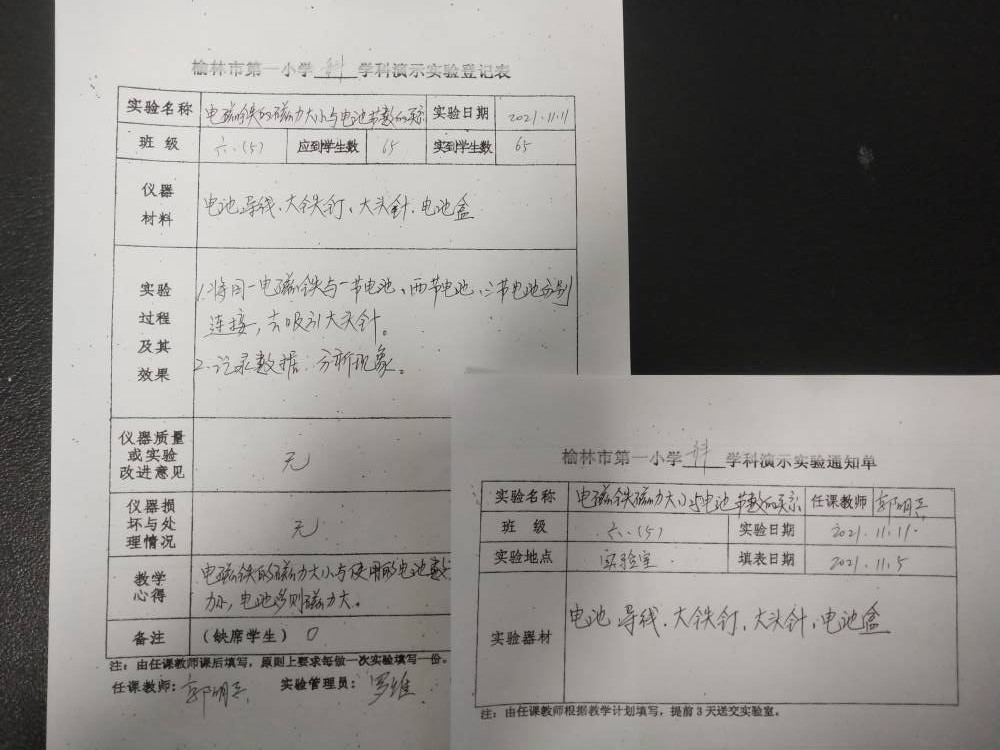 榆林市第一小学 科 学科演示实验登记表
实验名称 电磁铁的磁力大小与电池节数的关系 实验日期 2021.11.11
班 级 六.(5) 应到学生数 65 实到学生数 65
仪器
材料
电池.导线.大铁钉、大头针.电池盒
实验
过程
及其
效果
1.将同一电磁铁与一节电池、两节电池、三节电池分别
连接,去吸引大头针。
2.记录数据.分析现象。
仪器质量
或实验
改进意见
无
仪器损
坏与处
理情况
无
教学
心得
电磁铁的磁力大小与使用的电池数
电池多则磁力大。
备注 (缺席学生) 0
注:由任课教师课后填写,原则上要求每做一次实验填写一份。
任课教师:郭明 实验管理员:罗维
榆林市第一小学 科 学科演示实验通知单
实验名称 电磁铁磁力大小与电池节数的关系 任课教师 郭明
班 级 六.(5) 实验日期 2021.11.11
实验地点 实验室. 填表日期 2021.11.5
实验器材
电池.导线.大铁钉.大头针.电池盒
注:由任课教师根据教学计划填写,提前3天送交实验室。